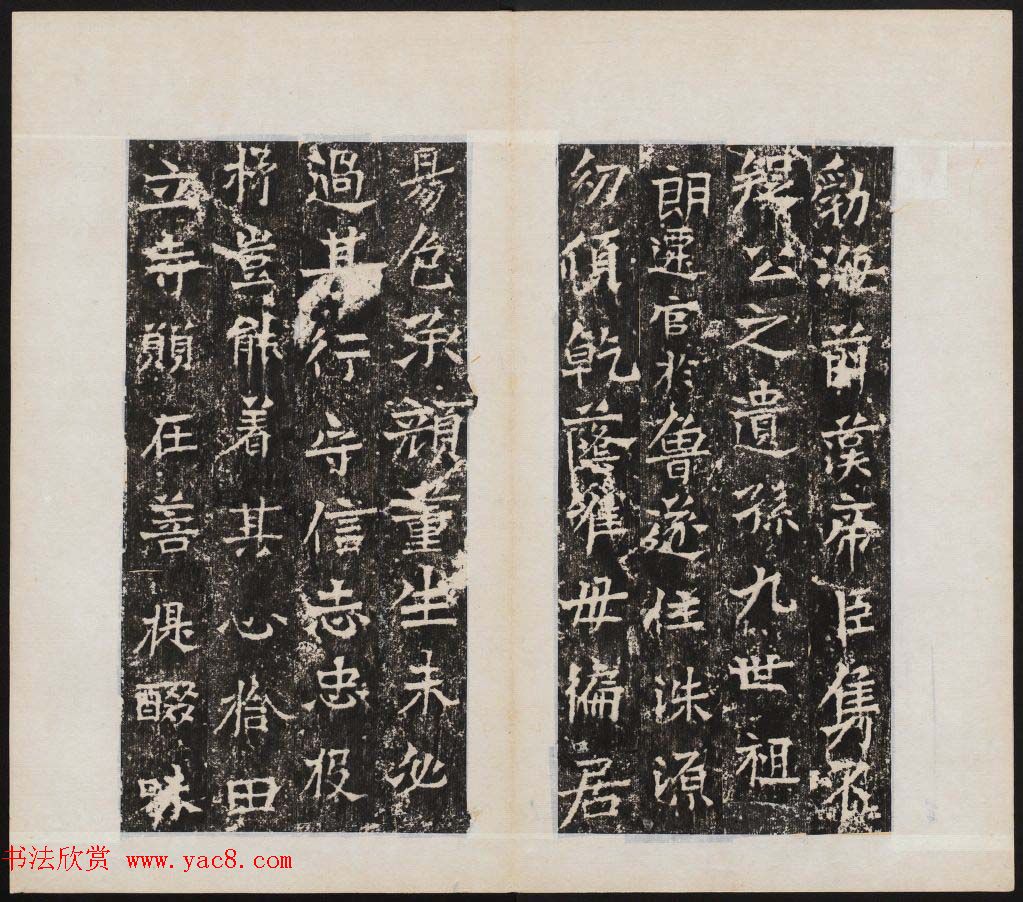 勃海前漢帝臣雋不
疑公之遺孫九世祖
朗遷官於魯遂住洙源
幼傾乾蔭唯毋偏居
易色承顏董生未必
過其行守信志忠投
杼豈能着其心捨田
立寺願在菩提醊味
书法欣赏 www.yac8.com